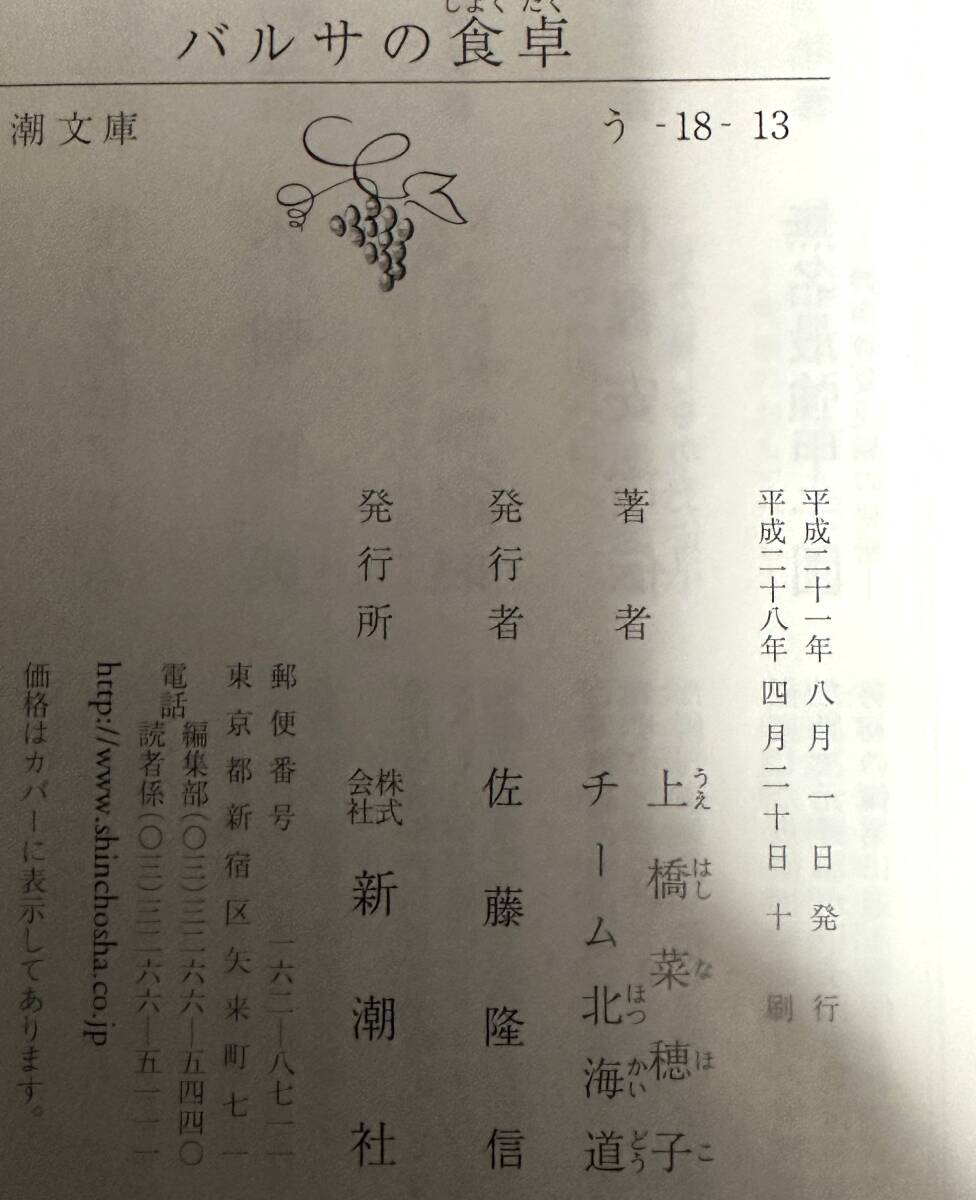 バルサの食卓
潮文庫
う - 18 - 13
平成二十一年八月一日発行
平成二十八年四月二十日十刷
著者 上橋菜穂子
チーム北海道
発行者 佐藤隆信
発行所 株式会社 新潮社
郵便番号 一六二―八七一一
東京都新宿区矢来町七一
電話 編集部(〇三)三二六六―五四四〇
読者係(〇三)三二六六―五一一一
http://www.shinchosha.co.jp
価格はカバーに表示してあります。